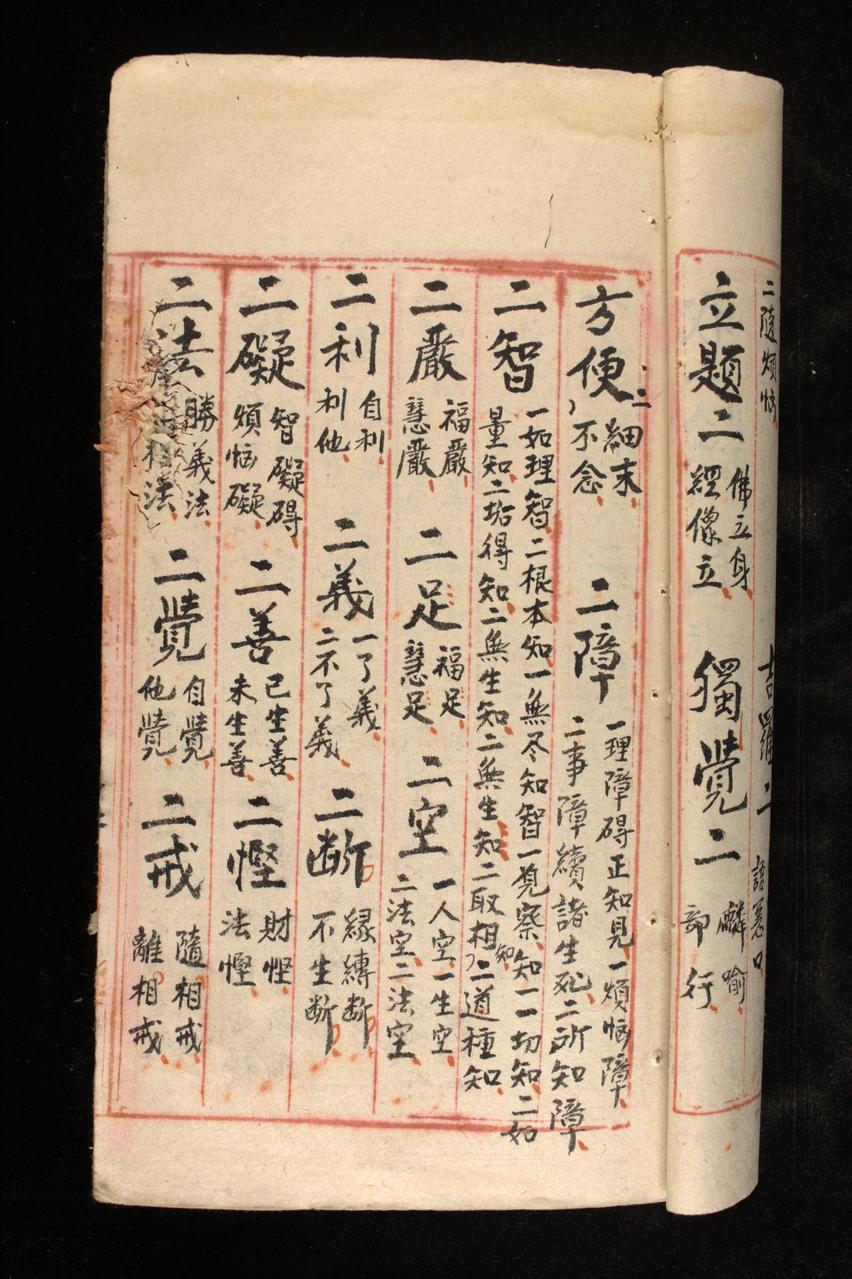 二隨煩惱 吉羅二
立題二 佛立身 經像立 獨覺二 麟喻 部行
方便二 細末 不念 二障 一理障碍正知見一煩惱障 二事障續諸生死二所知障
二智 一如理智二根本知一無尽知智一覓察知一一切知二如 量知二垢得知二無生知二無生知二取相知二道種知
二嚴 福嚴 慧嚴 二足 福足 慧足 二空 一人空一生空 二法空二法空
二利 自利 利他 二義 一了義 二不了義 二断 縁縛断 不生断
二礙 智礙碍 煩惱礙 二善 已生善 未生善 二慳 財慳 法慳
二法 勝義法 相法 二覺 自覺 他覺 二戒 隨相戒 離相戒